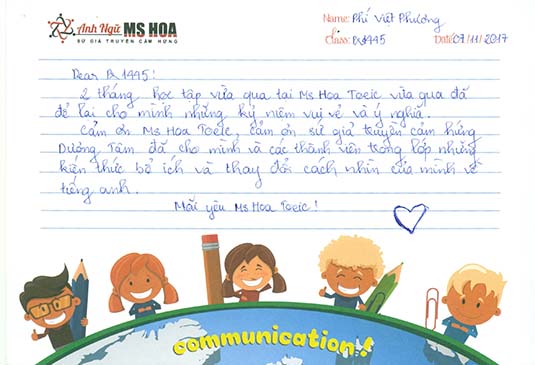 Anh Ngữ MS HOA
SỨ GIẢ TRUYỀN CẢM HỨNG
Name: Phí Việt Phương
Class: BA1445
Date: 07/11/2017
Dear BA1445!
2 tháng học tập vừa qua tại Ms Hoa Toeic vừa qua đã
để lại cho mình những kỷ niệm vui vẻ và ý nghĩa.
Cảm ơn Ms Hoa Toeic, cảm ơn sứ giả truyền cảm hứng
Dương Tâm đã cho mình và các thành viên trong lớp những
kiến thức bổ ích và thay đổi cách nhìn của mình về
tiếng anh.
Mãi yêu Ms Hoa Toeic!
communication!